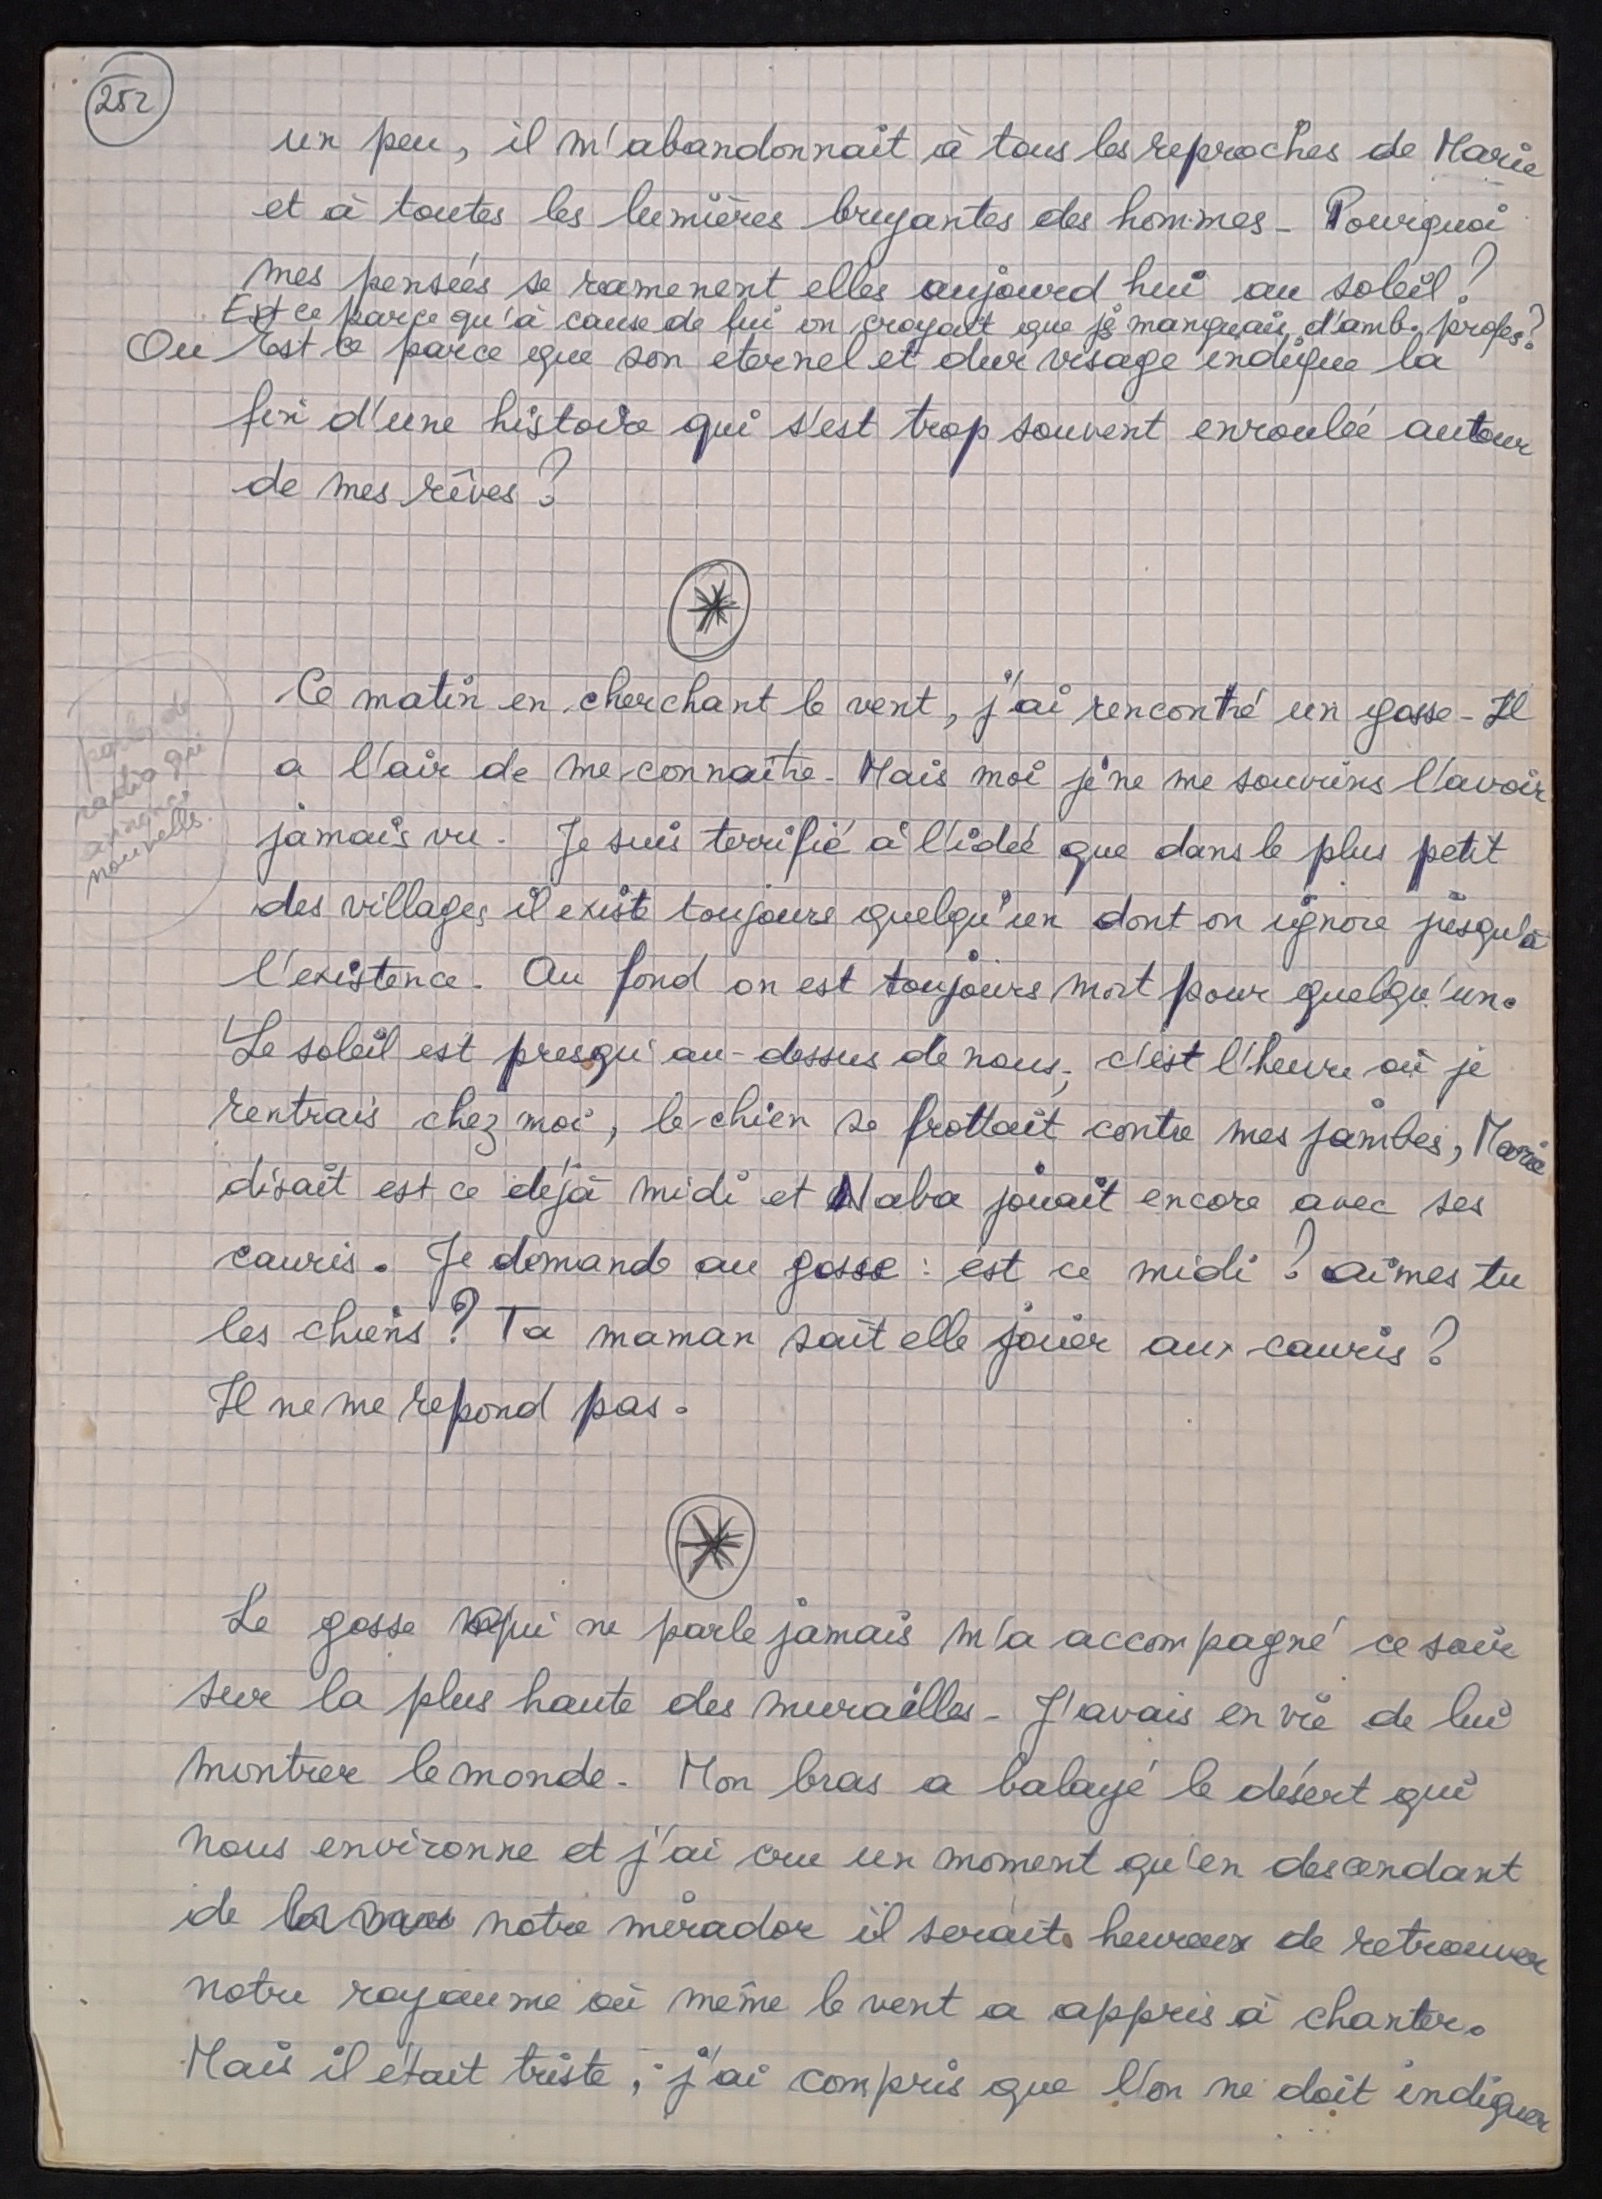 252
un peu, il m'abandonnait à tous les reproches de Marie
et à toutes les lumières bruyantes des hommes - Pourquoi
mes pensées se ramenent elles aujourd hui au soleil ?
Est ce parce qu'à cause de lui on croyait que je manquais d'amb. profes. ?
Ou Est ce parce que son eternel et dur visage indique la
fin d'une histoire qui s'est trop souvent enroulée autour
de mes rêves ?
*
Ce matin en cherchant le vent, j'ai rencontré un gosse - Il
a l'air de me connaître - Mais moi je ne me souviens l'avoir
jamais vu. Je suis terrifié à l'idée que dans le plus petit
des villages il existe toujours quelqu'un dont on ignore jusqu'à
l'existence. Au fond on est toujours mort pour quelqu'un.
Le soleil est presqu' au-dessus de nous, c'est l'heure où je
rentrais chez moi, le chien se frottait contre mes jambes, Marie
disait est ce déjà midi et Naba jouait encore avec ses
cauris. Je demande au gosse : est ce midi ? aimes tu
les chiens ? Ta maman sait elle jouer aux cauris ?
Il ne me repond pas.
radio qui
nouvelles.
*
Le gosse qui ne parle jamais m'a accompagné ce soir
sur la plus haute des murailles - J'avais envie de lui
montrer le monde. Mon bras a balayé le désert qui
nous environne et j'ai cru un moment qu'en descendant
de notre mirador il serait heureux de retrouver
notre royaume où même le vent a appris à chanter.
Mais il était triste, j'ai compris que l'on ne doit indiquer